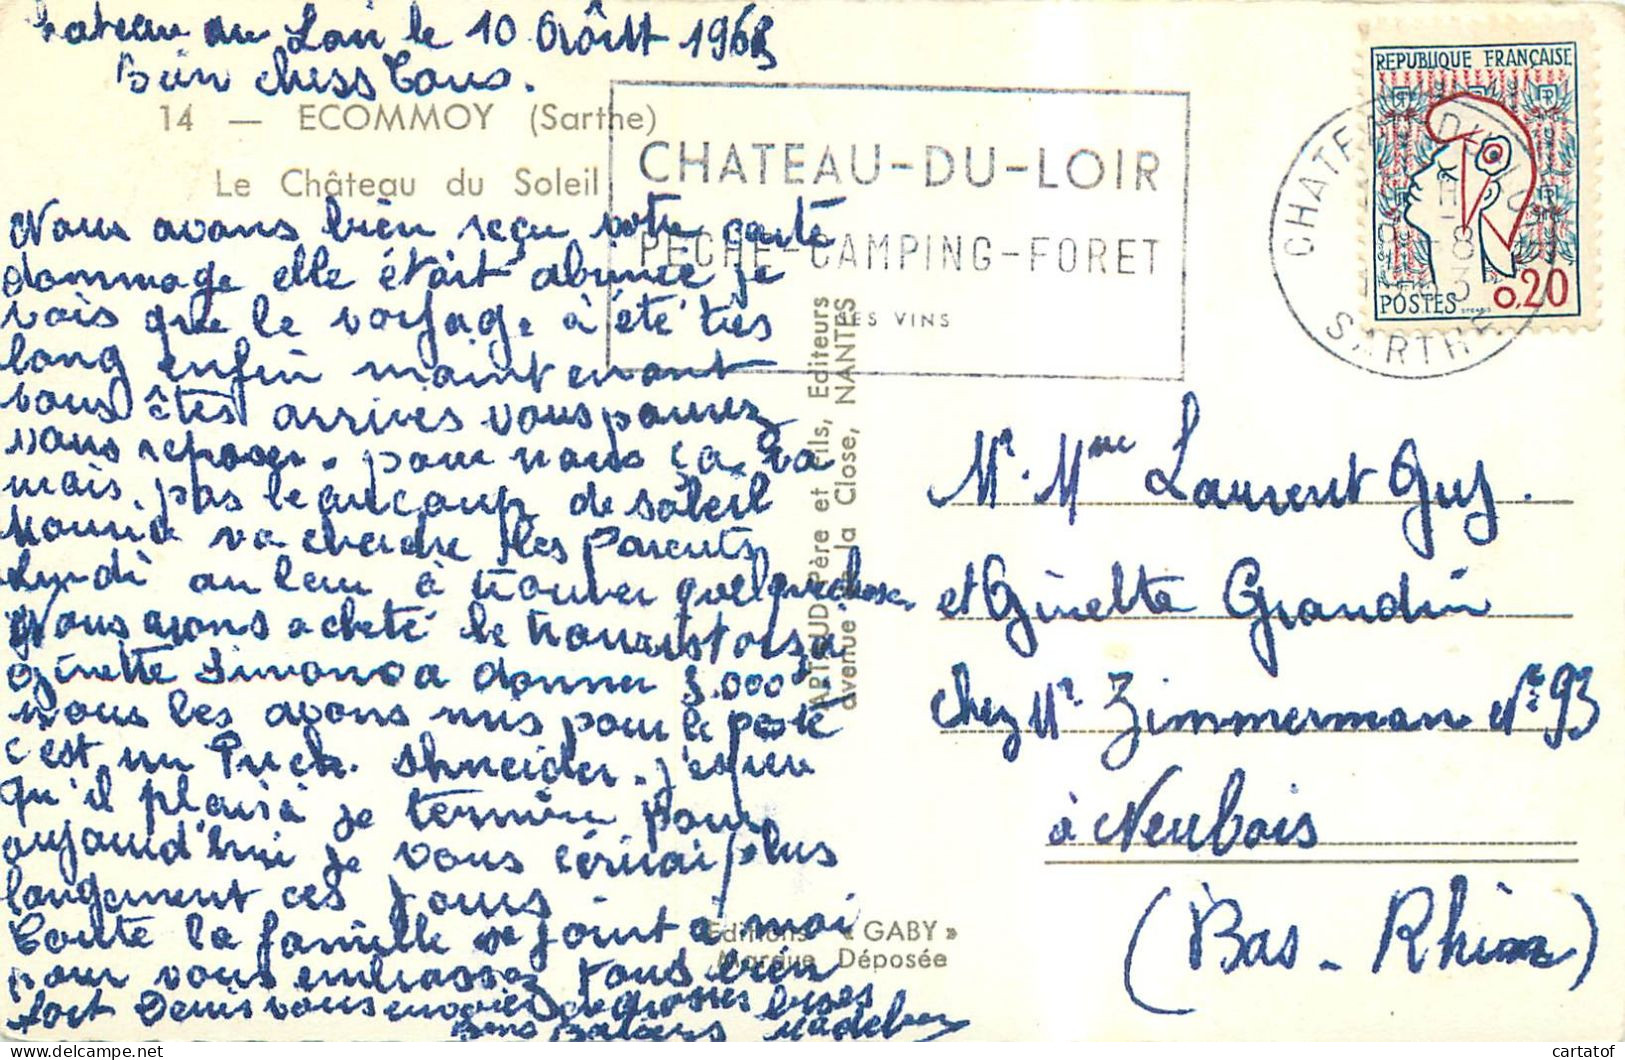 Chateau du Loir le 10 Aôutt 1963
Bien chers Tous.
14 — ECOMMOY (Sarthe)
Le Château du Soleil
Nous avons bien reçu votre carte
dommage elle était abimée je
vois que le voyage à été très
long enfin maintenant
vous êtes arrives vous pourrez
vous reposer. pour nous ça va
mais pas beaucoup de soleil
va cherche les Parents
Lundi au leur à trouver quelque chose
Nous avons acheté le
ginette Simone a donner 3.000
nous les avons mis pour le poste
c'est un Puck Shneider. j'espère
qu'il plaira je termine pour
aujourd'hui je vous écrirai plus
longement ces jours
Toute la famille se joint à moi
pour vous embrasser tous bien
fort Denis vous envoies de grosses bises
Bons Baisers
CHATEAU-DU-LOIR
PECHE-CAMPING-FORET
SES VINS
CHATEAU DU LOIR
SARTHE
REPUBLIQUE FRANÇAISE
POSTES 0,20
ARTAUD Père et Fils, Editeurs
avenue de la Close, NANTES
Mr. Mme Laurent Guy.
et Ginette Grandin
chez Mr. Zimmerman No 93
à Neubois
(Bas-Rhin)
Editions « GABY »
Marque Déposée
cartatof